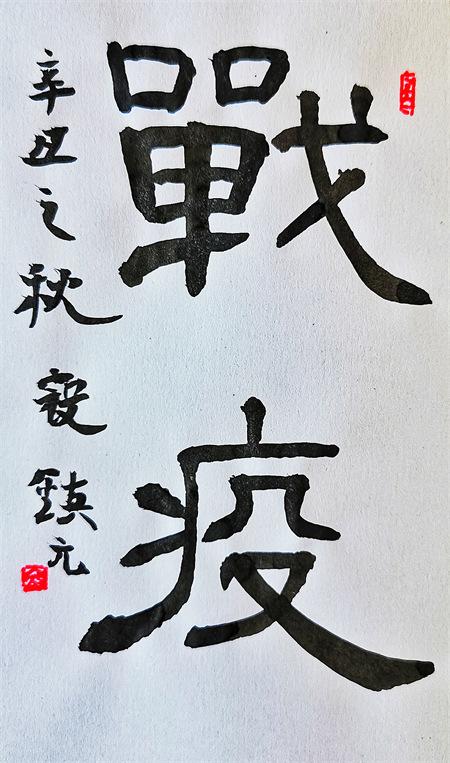 戰疫
辛丑之秋 寇鎮元